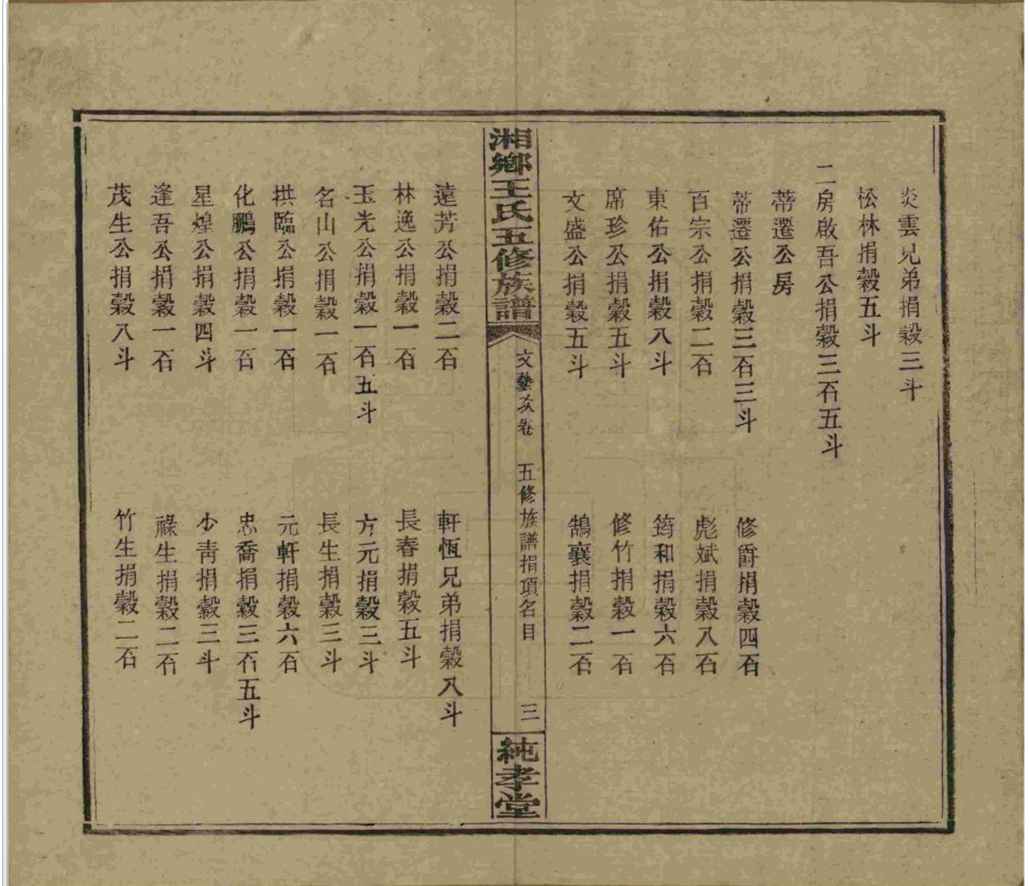 炎雲兄弟捐穀三斗
松林捐穀五斗
二房啟吾公捐穀三石五斗
蒂遷公房
蒂遷公捐穀三石三斗
修爵捐穀四石
百宗公捐穀二石
彪斌捐穀八石
東佑公捐穀八斗
筠和捐穀六石
席珍公捐穀五斗
修竹捐穀一石
文盛公捐穀五斗
鵠襄捐穀二石
湘鄉王氏五修族譜
文藝次卷
五修族譜捐項名目
三
純孝堂
遠芳公捐穀二石
軒恆兄弟捐穀八斗
林逸公捐穀一石
長春捐穀五斗
玉光公捐穀一石五斗
方元捐穀三斗
名山公捐穀一石
長生捐穀三斗
拱臨公捐穀一石
元軒捐穀六石
化鵬公捐穀一石
忠喬捐穀三石五斗
星煌公捐穀四斗
少青捐穀三斗
逢吾公捐穀一石
祿生捐穀二石
茂生公捐穀八斗
竹生捐穀二石